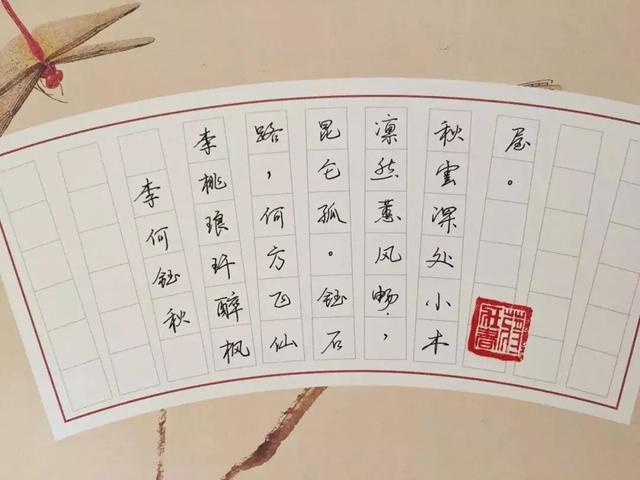 李何钰秋
李桃琅玕醉枫
路，何方飞仙
昆仑孤。钰石
凛然蕙风畅，
秋雲深处小木
屋。